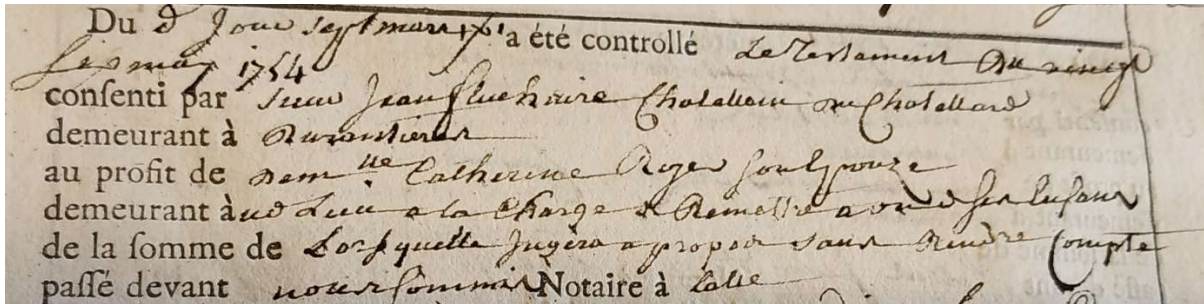 Du d Jour sept mars a été controllé Le Testament du vingt
six may 1754
consenti par sieur Jean Chatellain du Chatellard
demeurant à
au profit de demlle Catherine Roger son Epouze
demeurant à ud Lieu a la Charge de Remettre a de ses Enfans
de la somme de Lorsquelle Jugera a propos sans Rendre Compte
passé devant Notaire à Lalle